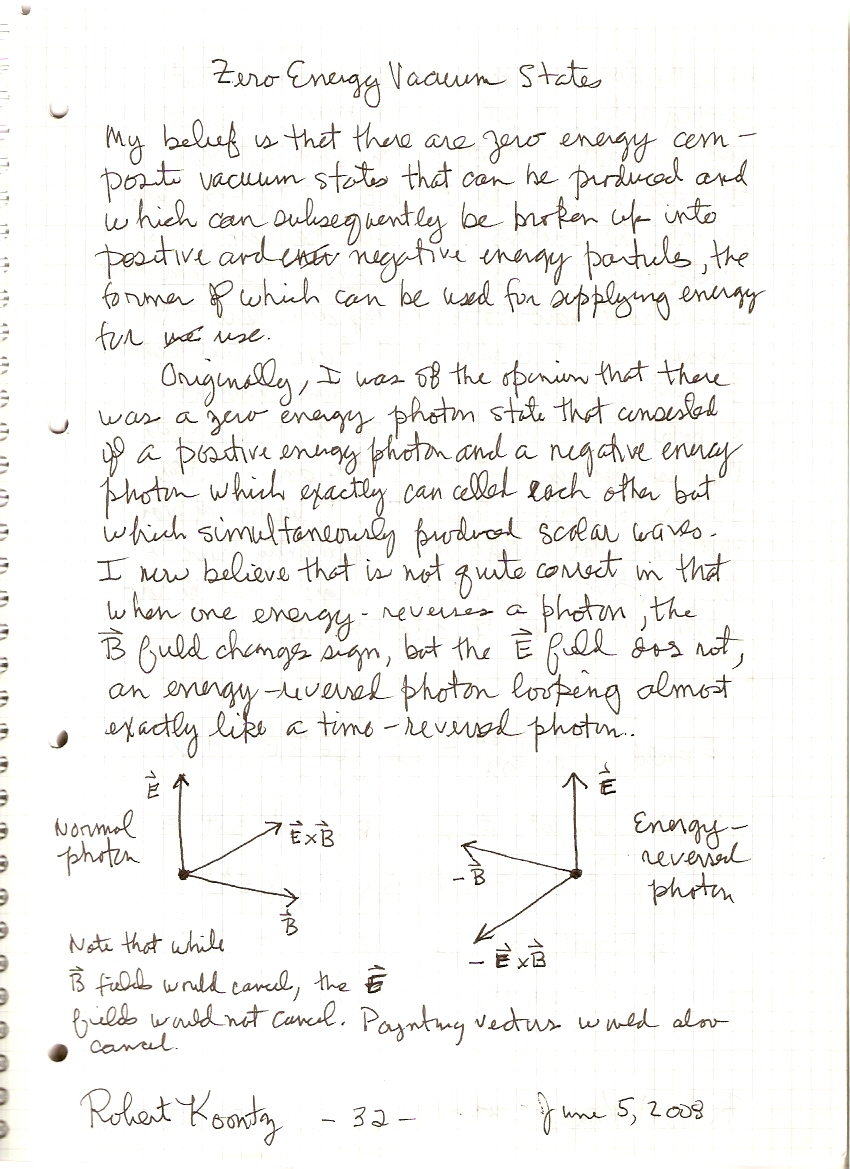 Zero Energy Vacuum States
My belief is that there are zero energy com-
posite vacuum states that can be produced and
which can subsequently be broken up into
positive and negative energy particles, the
former of which can be used for supplying energy
for use.
Originally, I was of the opinion that there
was a zero energy photon state that consisted
of a positive energy photon and a negative energy
photon which exactly cancelled each other but
which simultaneously produced scalar waves.
I now believe that is not quite correct in that
when one energy-reverses a photon, the
B⃗ field changes sign, but the E⃗ field does not,
an energy-reversed photon looking almost
exactly like a time-reversed photon..
E⃗
Normal
photon
E⃗xB⃗
B⃗
E⃗
Energy-
reversed
photon
-B⃗
-E⃗xB⃗
Note that while
B⃗ fields would cancel, the E⃗
fields would not cancel. Poynting vectors would also
cancel.
Robert Koontz - 32 - June 5, 2008